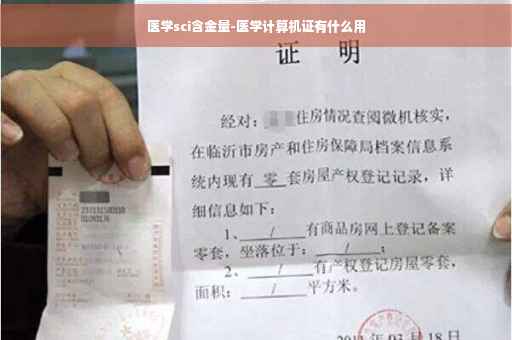 医学sci含金量-医学计算机证有什么用
证 明
经对：住房情况查阅微机核实，
在临沂市房产和住房保障局档案信息系
统内现有 零 套房屋产权登记记录，详
细信息如下：
1、 / 有商品房网上登记备案
零套，坐落位于： / ；
2、 / 有产权登记房屋零套，
面积： / 平方米。
03月18日